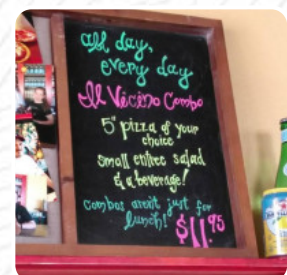 all day,
every day
Il Vicino Combo
5" pizza of your
choice
small entree salad
& a beverage!
combos aren't just for
lunch!
$11.95